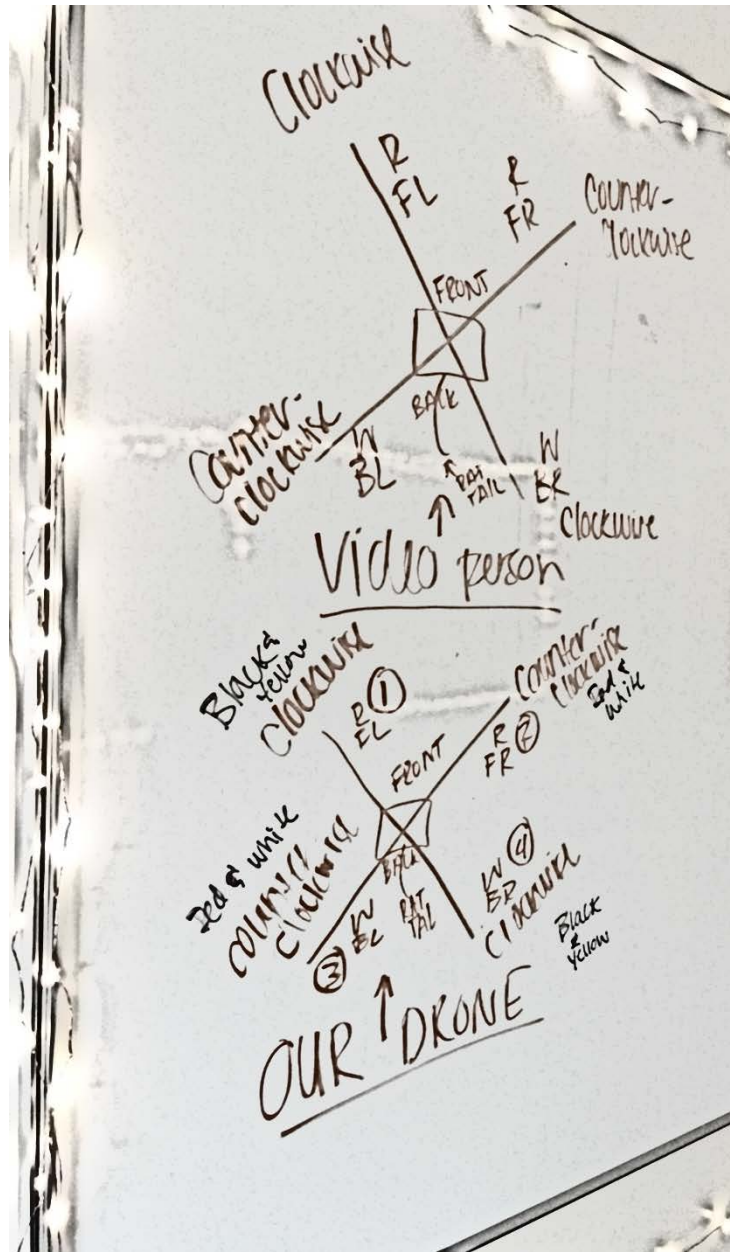 Clockwise
R
FL
R
FR
Counter-
clockwise
FRONT
BACK
Counter-
clockwise
W
BL
RAT
TAIL
W
BR
Clockwise
Video person
Black &
Yellow
Clockwise
R ①
FL
Counter-
clockwise
Red &
white
FRONT
R
FR ②
Red & white
counter
clockwise
BACK
RAT
TAL
W
BL
③
W ④
BR
Clockwise
Black
&
Yellow
OUR DRONE